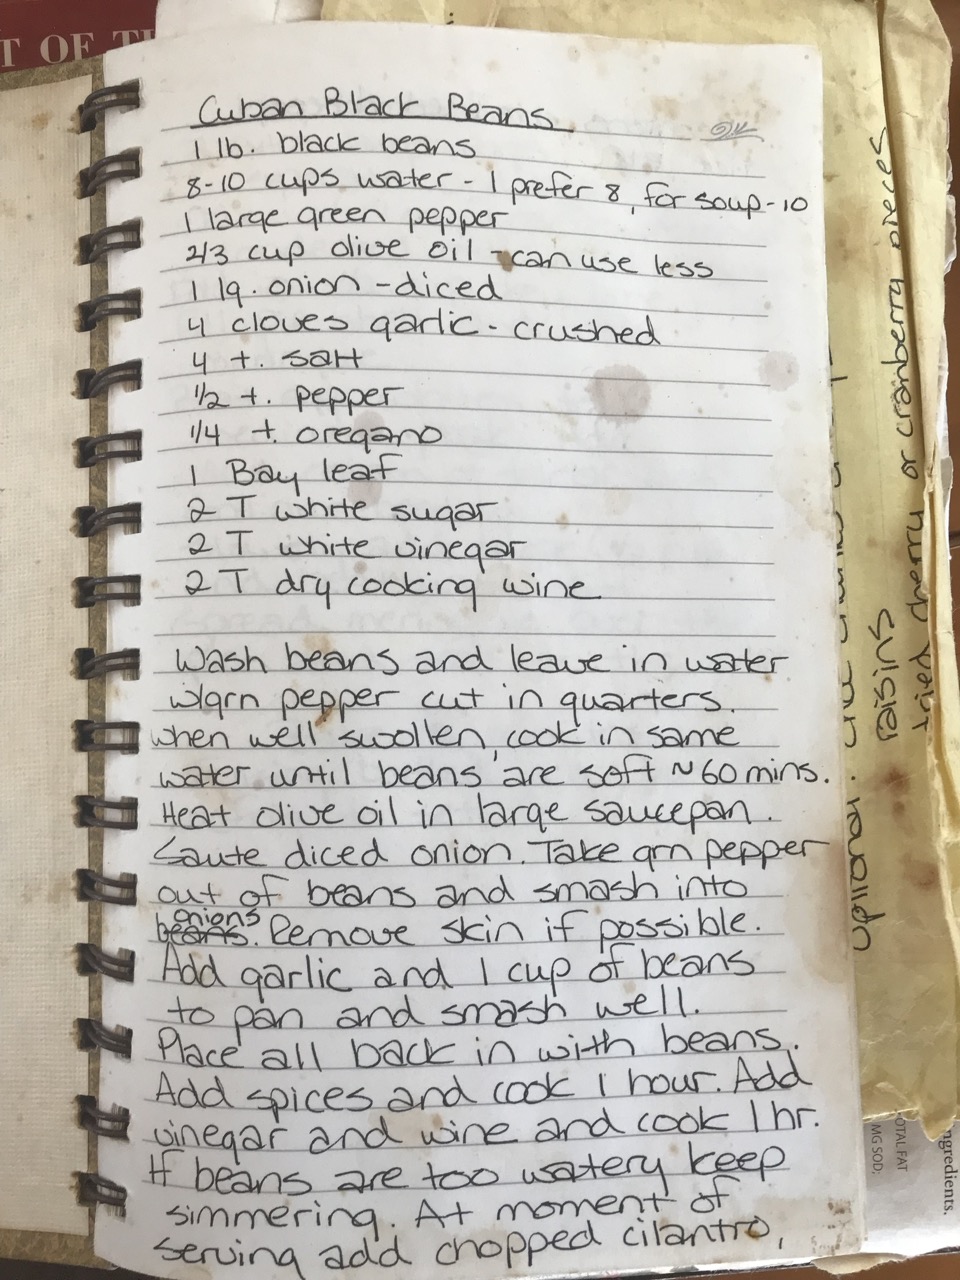 T OF T
Cuban Black Beans
1 lb. black beans
8-10 cups water - I prefer 8, for soup-10
1 large green pepper
2/3 cup olive oil - can use less
1 lg. onion - diced
4 cloves garlic - crushed
4 t. salt
1/2 t. pepper
1/4 t. oregano
1 Bay leaf
2 T white sugar
2 T white vinegar
2 T dry cooking wine
Wash beans and leave in water
w/grn pepper cut in quarters.
When well swollen, cook in same
water until beans are soft ~60 mins.
Heat olive oil in large saucepan.
Saute diced onion. Take grn pepper
out of beans and smash into
onions
beans. Remove skin if possible.
Add garlic and 1 cup of beans
to pan and smash well.
Place all back in with beans.
Add spices and cook 1 hour. Add
vinegar and wine and cook 1 hr.
If beans are too watery keep
simmering. At moment of
serving add chopped cilantro,
raisins
dried cherry or cranberry pieces
OTAL FAT
MG SOD;
ngredients.